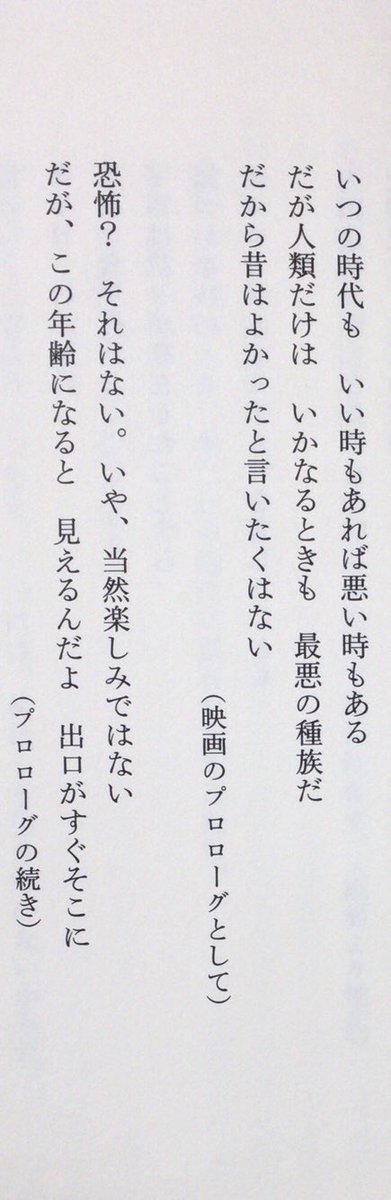 いつの時代も　いい時もあれば悪い時もある
だが人類だけは　いかなるときも　最悪の種族だ
だから昔はよかったと言いたくはない
（映画のプロローグとして）
恐怖？　それはない。いや、当然楽しみではない
だが、この年齢になると　見えるんだよ　出口がすぐそこに
（プロローグの続き）